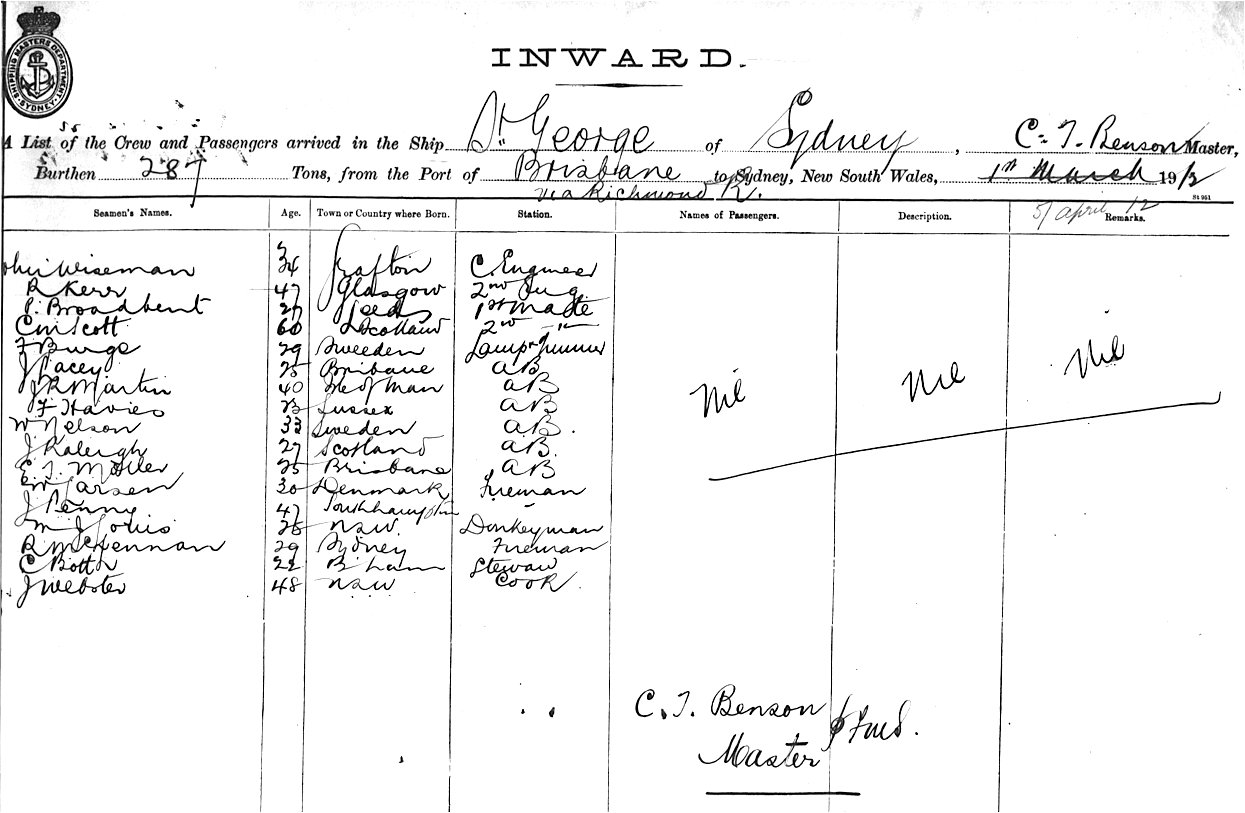 SHIPPING MASTERS DEPARTMENT. SYDNEY.
INWARD.
SS
A List of the Crew and Passengers arrived in the Ship St. George of Sydney, C. T. Benson Master,
Burthen 287 Tons, from the Port of Brisbane to Sydney, New South Wales, 1st March 1912
via Richmond R.
St 951
5/ april 12
Seamen's Names. Age. Town or Country where Born. Station. Names of Passengers. Description. Remarks.
Wiseman 34 Grafton C. Engineer
R Kerr 47 Glasgow 2nd Eng
P. Broadbent 27 Leeds 1st Mate
Cm Scott 60 Scotland 2nd "
F Burge 29 Sweeden Lamp Trimmer
J Pacey 25 Brisbane AB
J R Martin 40 Ile of Man AB
F. Havies Sussex AB
W Nelson 33 Sweden AB.
J Raleigh 27 Scotland AB.
E. J. Moller 25 Brisbane AB
Larsen 30 Denmark Fireman
J Penny 47 Southhampton
M J Louis 28 NSW. Donkeyman
R McKennan 29 Sydney Fireman
C Both 22 B'ham Steward
J Webster 48 NSW Cook
Nil Nil Nil
C. T. Benson
Master